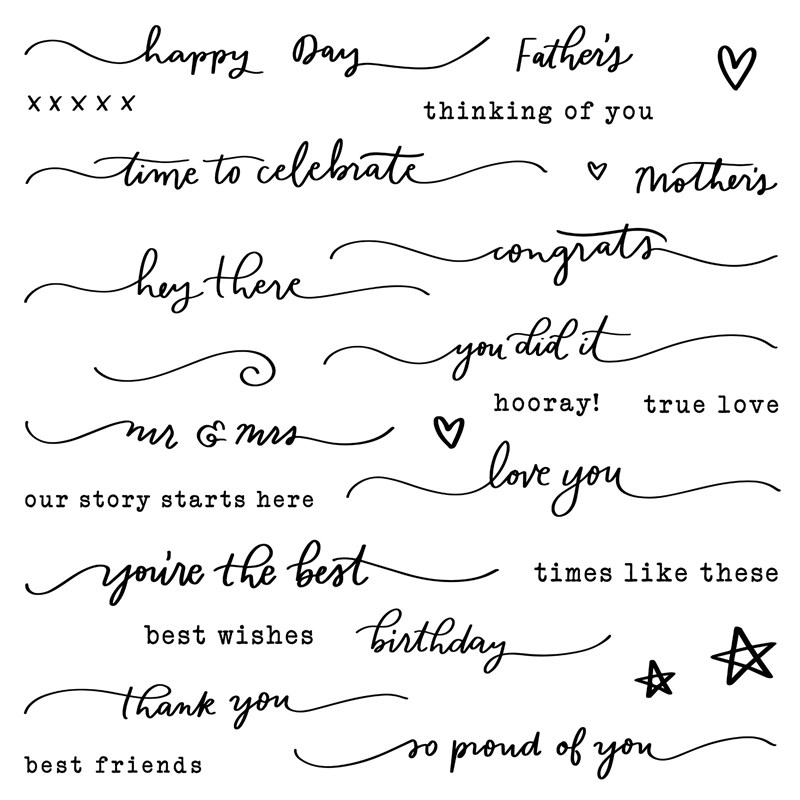 happy Day Father's
xxxxx
thinking of you
time to celebrate Mother's
congrats
hey there
you did it
hooray! true love
mr & mrs
love you
our story starts here
you're the best
times like these
best wishes birthday
thank you
so proud of you
best friends